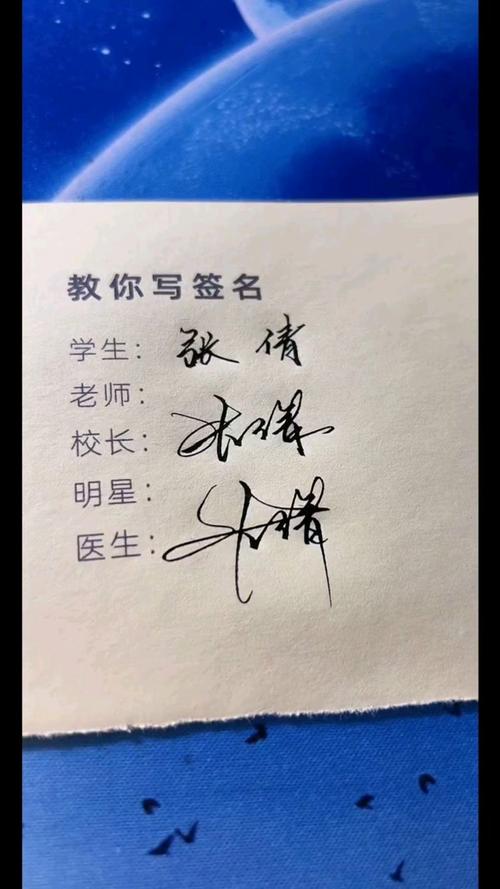 教你写签名
学生：张倩
老师：
校长：张倩
明星：
医生：张倩